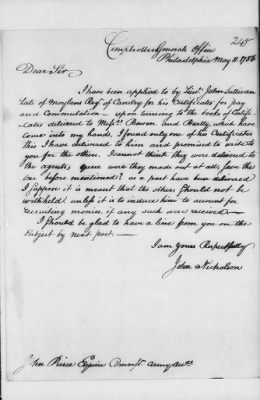 245
Comptroller Generals Office
Philadelphia May 11. 1786
Dear Sir
I have been applied to by Lieut. John Sullivan
late of Moylans Regt. of Cavalry for his Certificates for pay
and Commutation — upon turning to the books of Certifi-
cates delivered to Messrs. Bowen and Beatty which have
come into my hands, I found only one of his Certificates
this I have delivered to him and promised to write to
you for the other. I cannot think they were delivered to
the agents, were they made out at all, save the
one before mentioned? as a part have been delivered
I suppose it is meant that the others should not be
withheld unless it is to induce him to account for
recruiting money if any such was received —
I should be glad to have a line from you on the
subject by next post. —
I am yours Respectfully
John Nicholson
John Pierce Esquire Commissr. army Accts.